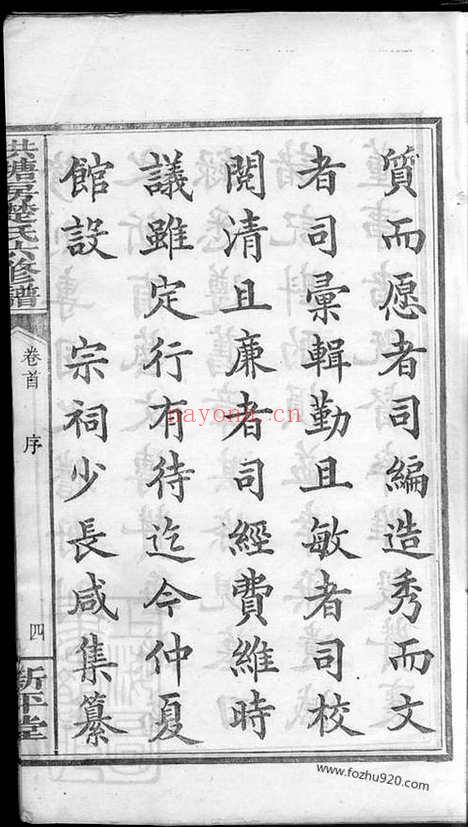 質而愿者司編造秀而文
者司彙輯勤且敏者司校
閱清且廉者司經費維時
議雖定行有待迄今仲夏
館設 宗祠少長咸集纂
洪塘房楚氏六修譜
卷首 序
四
新平堂
nayona.cn
www.fozhu920.com